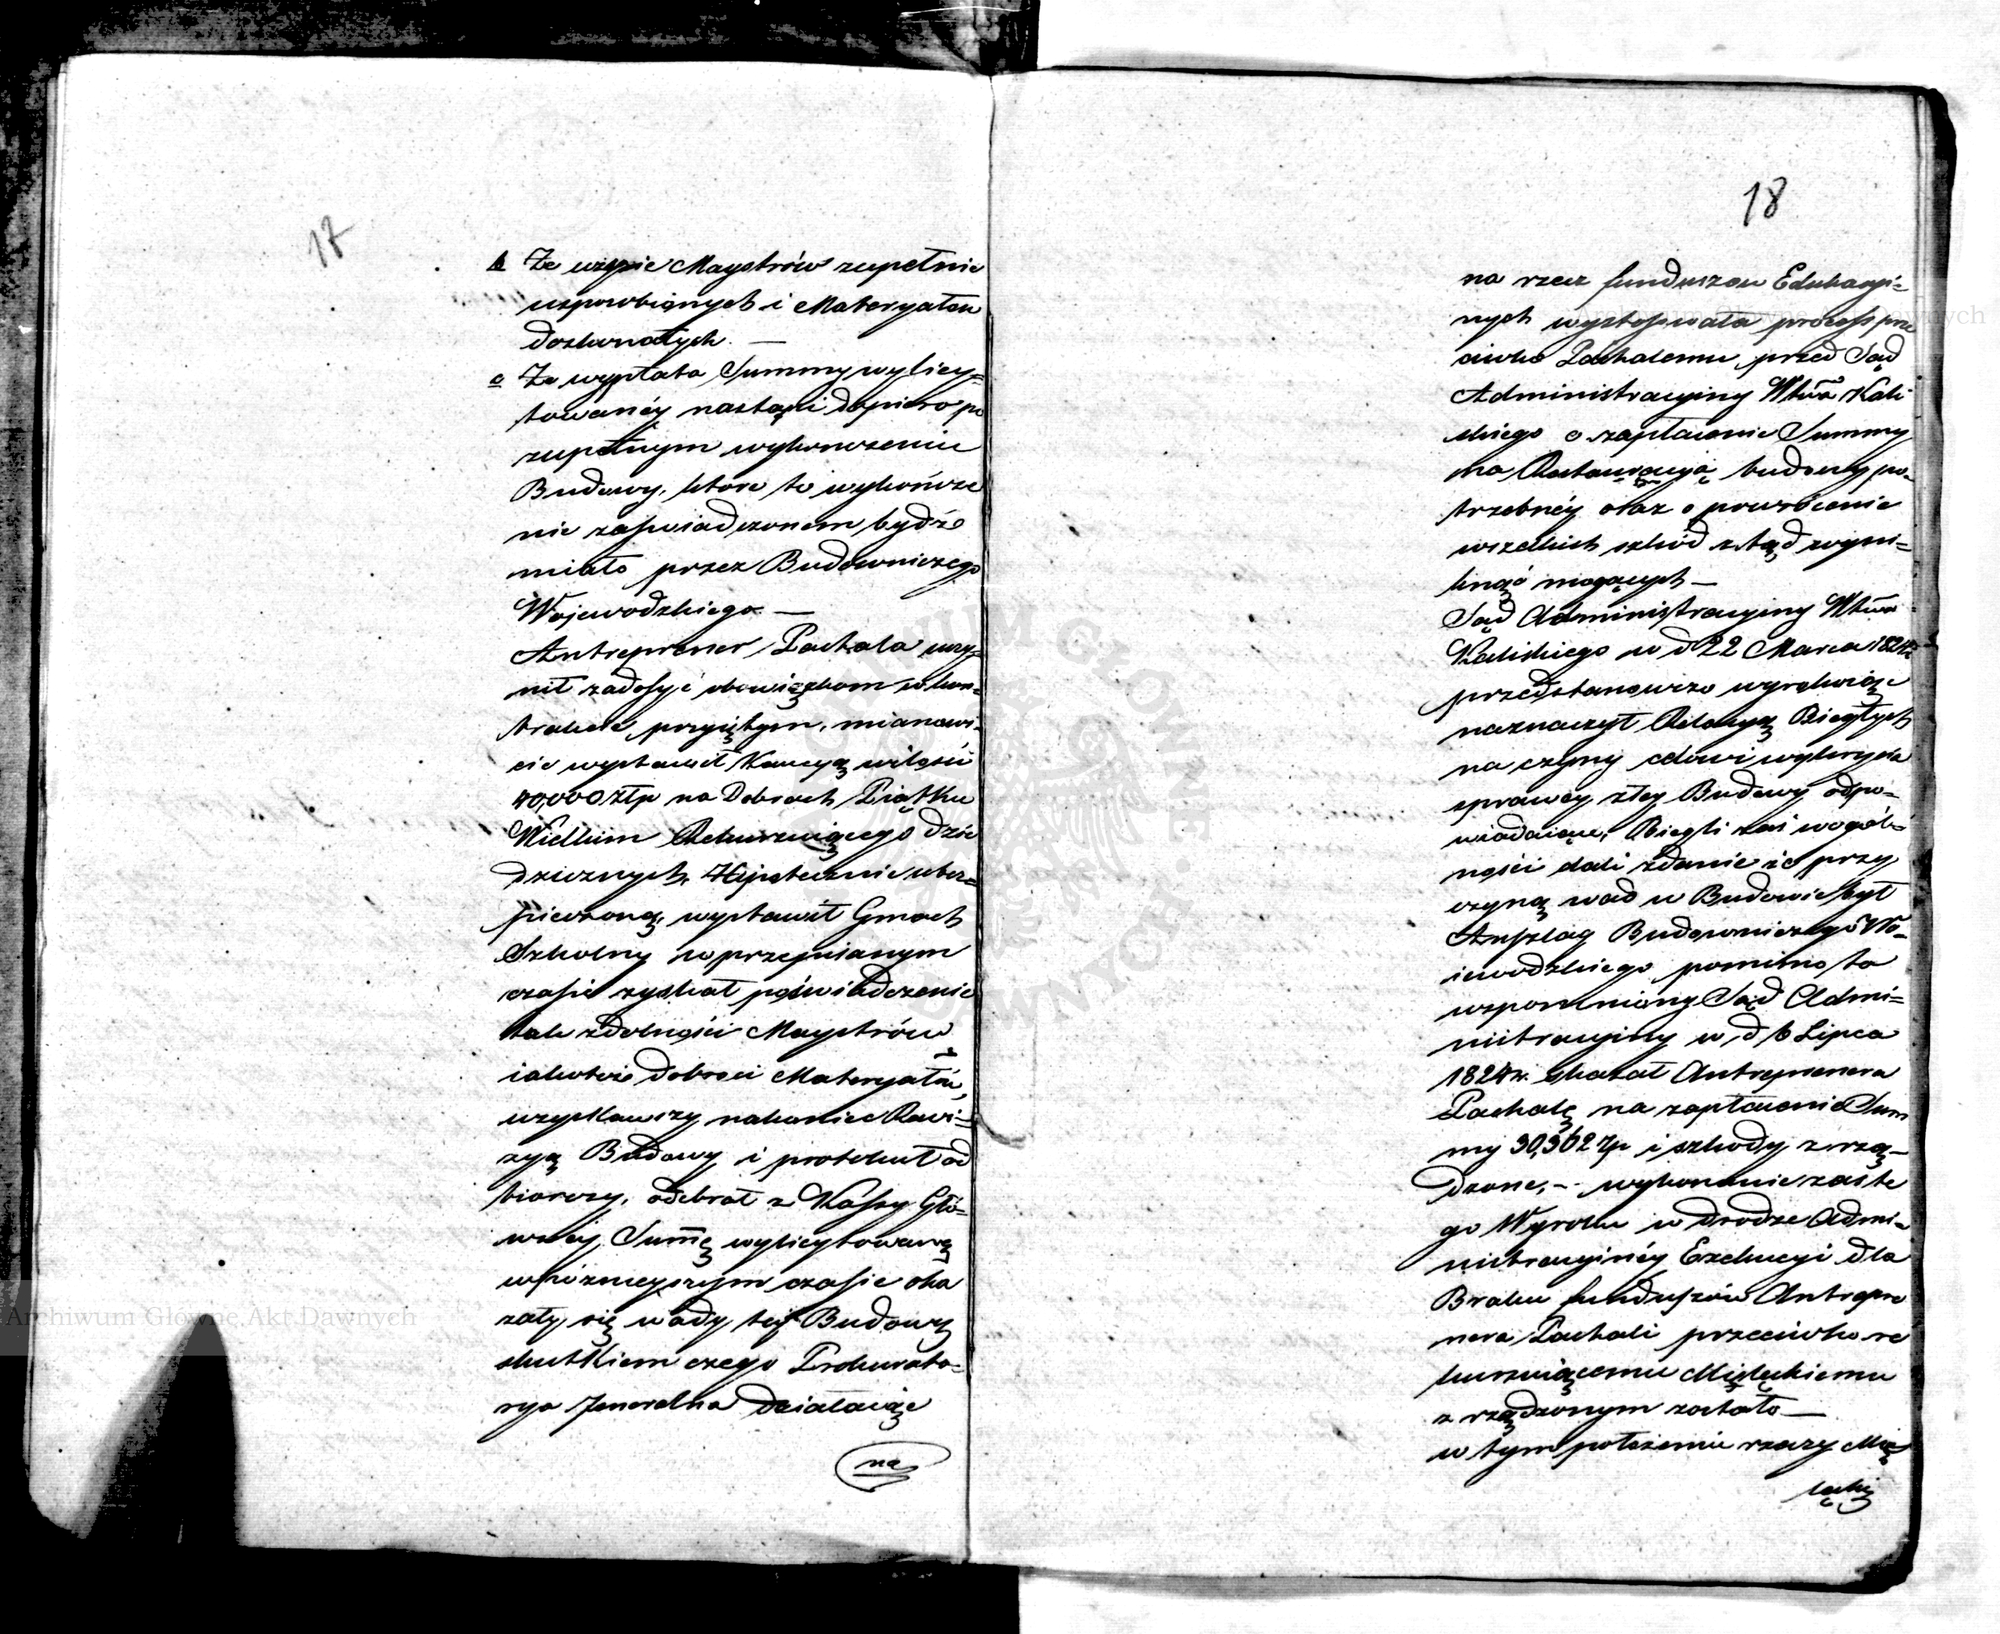 17
b Że użyie Maystrów zupełnie
usposobionych i Materyałow
doskonałych. —
c Że wypłata Summy wylicy=
towanéy nastąpi dopiero po
zupełnym wykonczeniu
Budowy, ktore to wykończe
nie zaświadczonem bydźo
miało przez Budowniczego
Wojewodzkiego —
Antreprener Pachala uczy=
nił zadosyć obowiązkom w kon=
trakcie przyiętym, mianowi=
cie wystawił Kaucyą w ilości
40,000 złp na Dobrach Piątku
Wielkim Rekurruiącego dzie
dzicznych, Hipotecznie ubez=
pieczoną, wystawił Gmach
Szkolny w przepisanym
czasie zyskał poświadczenie
tak zdolności Maystrów
iakoteż dobroci Materyałów,
uzyskawszy nakoniec Rewi=
zyą Budowy i protokuł od
biorczy, odebrał z Kassy Głó=
wney Summę wylicytowaną
w późnieyszym czasie oka
zały się wady tey Budowy
skutkiem czego Prokurato=
rya Jeneralna działaiąc
na
18
na rzecz funduszow Edukacyi=
nych wystosowała process prze
ciwko Pachalemu, przed Sąd
Administracyiny Wtwa Kali
skiego o zapłacenie Summy
na Restauracyą budowy po=
trzebnéy oraz o powrócenie
wszelkich szkód ztąd wyni=
knąć mogących —
Sąd Administracyiny Wtwa
Kaliskiego w d 22 Marca 1824 r.
przedstanowczo wyrokuiąc
naznaczył Relacyą Biegłych
na czyny celowi wykrycia
sprawcy złey Budowy odpo=
wiadaiące, Biegli zaś w ogól=
ności dali zdanie że przy
czyną wad w Budowie był
Anszlag Budowniczego Wo=
iewodzkiego pomimo to
wspomniony Sąd Admi=
nistracyiny w d 6 Lipca
1824 r. skazał Antreprenera
Pachalę na zapłacenie Sum
my 30,362 zp i szkody zrzą=
dzone, — wykonanie zaś te
go Wyroku w drodze Admi=
nistracyinéy Exekucyi dla
Braku funduszów Antrepre
nera Pachali przeciwko re
kurruiącemu Miełęckiemu
zrządzonym zostało —
w tym położeniu rzeczy Mię
łęcki
Archiwum Główne Akt Dawnych